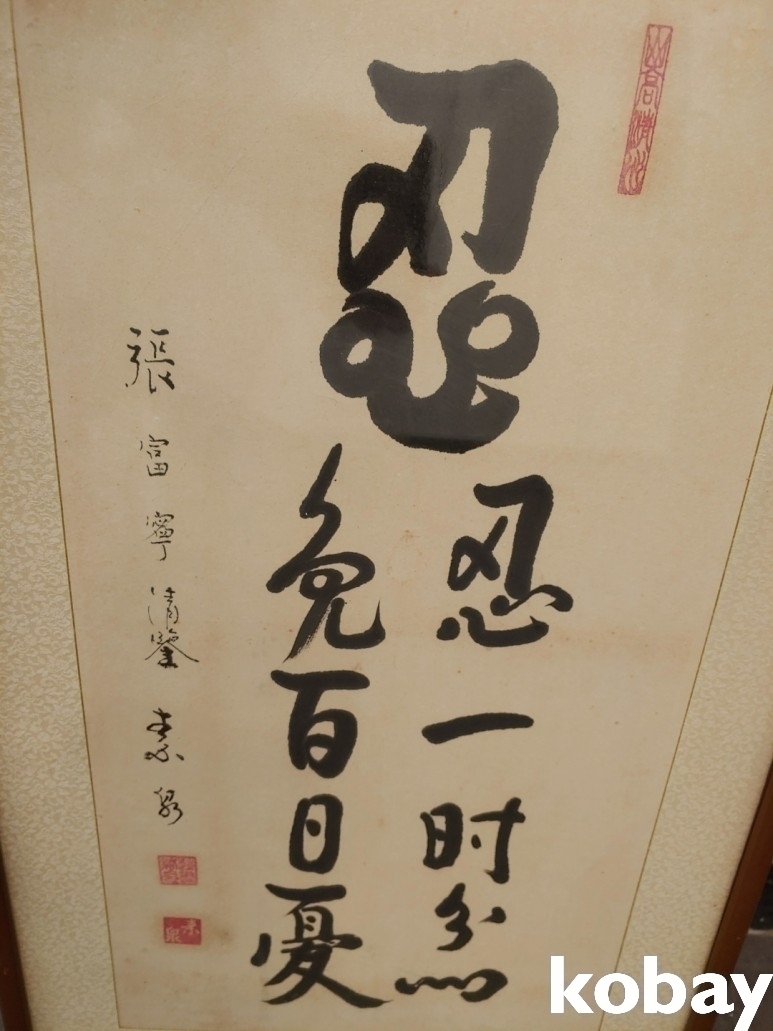 忍
忍一时忿
免百日憂
張富寧清鑒
kobay